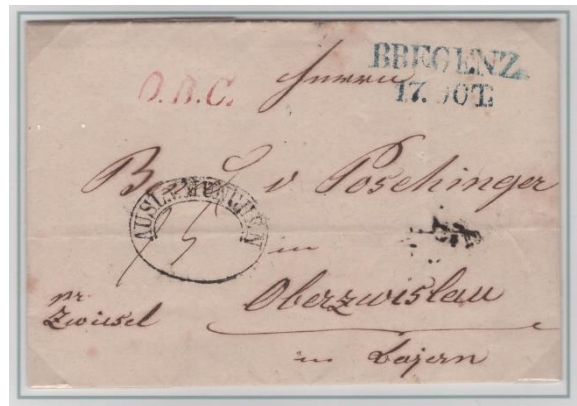 BREGENZ.
17. OCT.
O.B.C.
Herrn
B v Poschinger
AUSL. MÜNCHEN
in
pr
Zwiesel
Oberzwislau
in Bajern